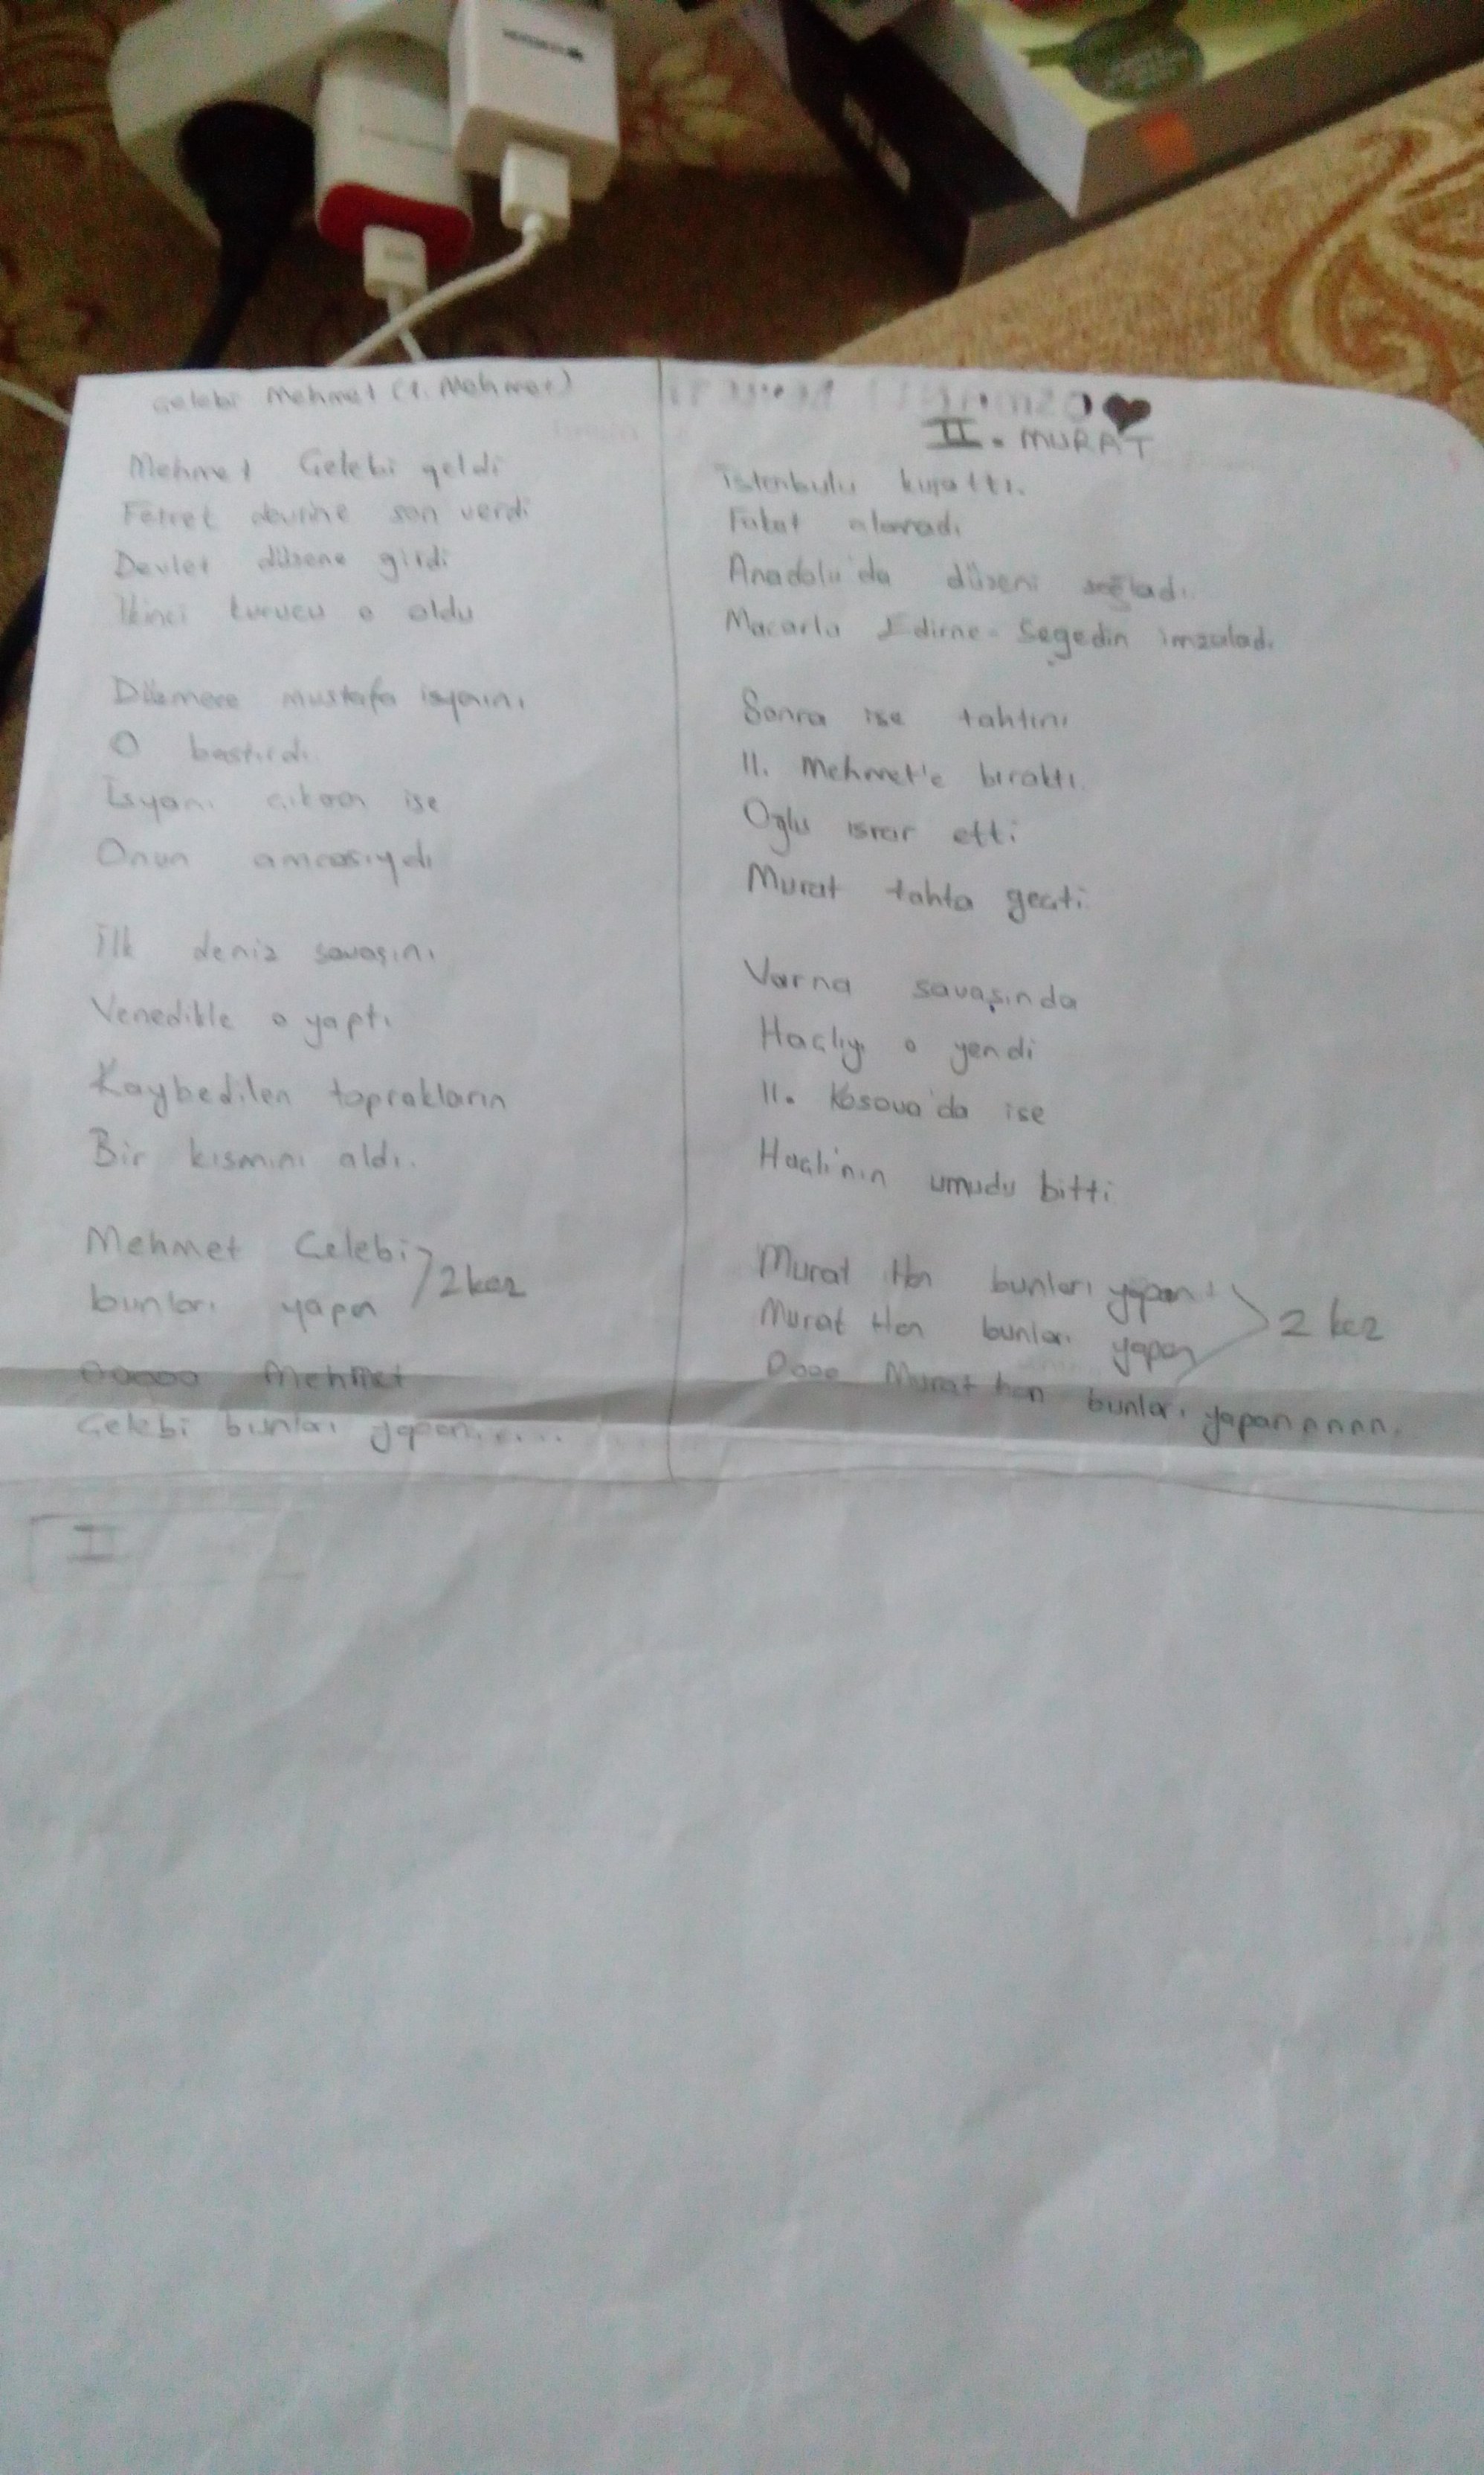 Çelebi Mehmet (1. Mehmet)
Mehmet Çelebi geldi
Fetret devrine son verdi
Devlet düzene girdi
İkinci kurucu o oldu
Düzmece mustafa isyanını
O bastırdı
İsyanı çıkaran ise
Onun amcasıydı
İlk deniz savaşını
Venedikle o yaptı
Kaybedilen toprakların
Bir kısmını aldı.
Mehmet Çelebi
bunları yapan
2 kez
Ooooo Mehmet
Çelebi bunları yapan......
II
II. MURAT
İstanbulu kuşattı.
Fakat alamadı
Anadolu'da düzeni sağladı.
Macarla Edirne-Segedin imzaladı.
Sonra ise tahtını
II. Mehmet'e bıraktı.
Oğlu ısrar etti
Murat tahta geçti
Varna savaşında
Haçlıyı o yendi
II. Kosova'da ise
Haçlı'nın umudu bitti
Murat Han bunları yapan
Murat Han bunları yapan
2 kez
Oooo Murat han bunları yapannnnn.